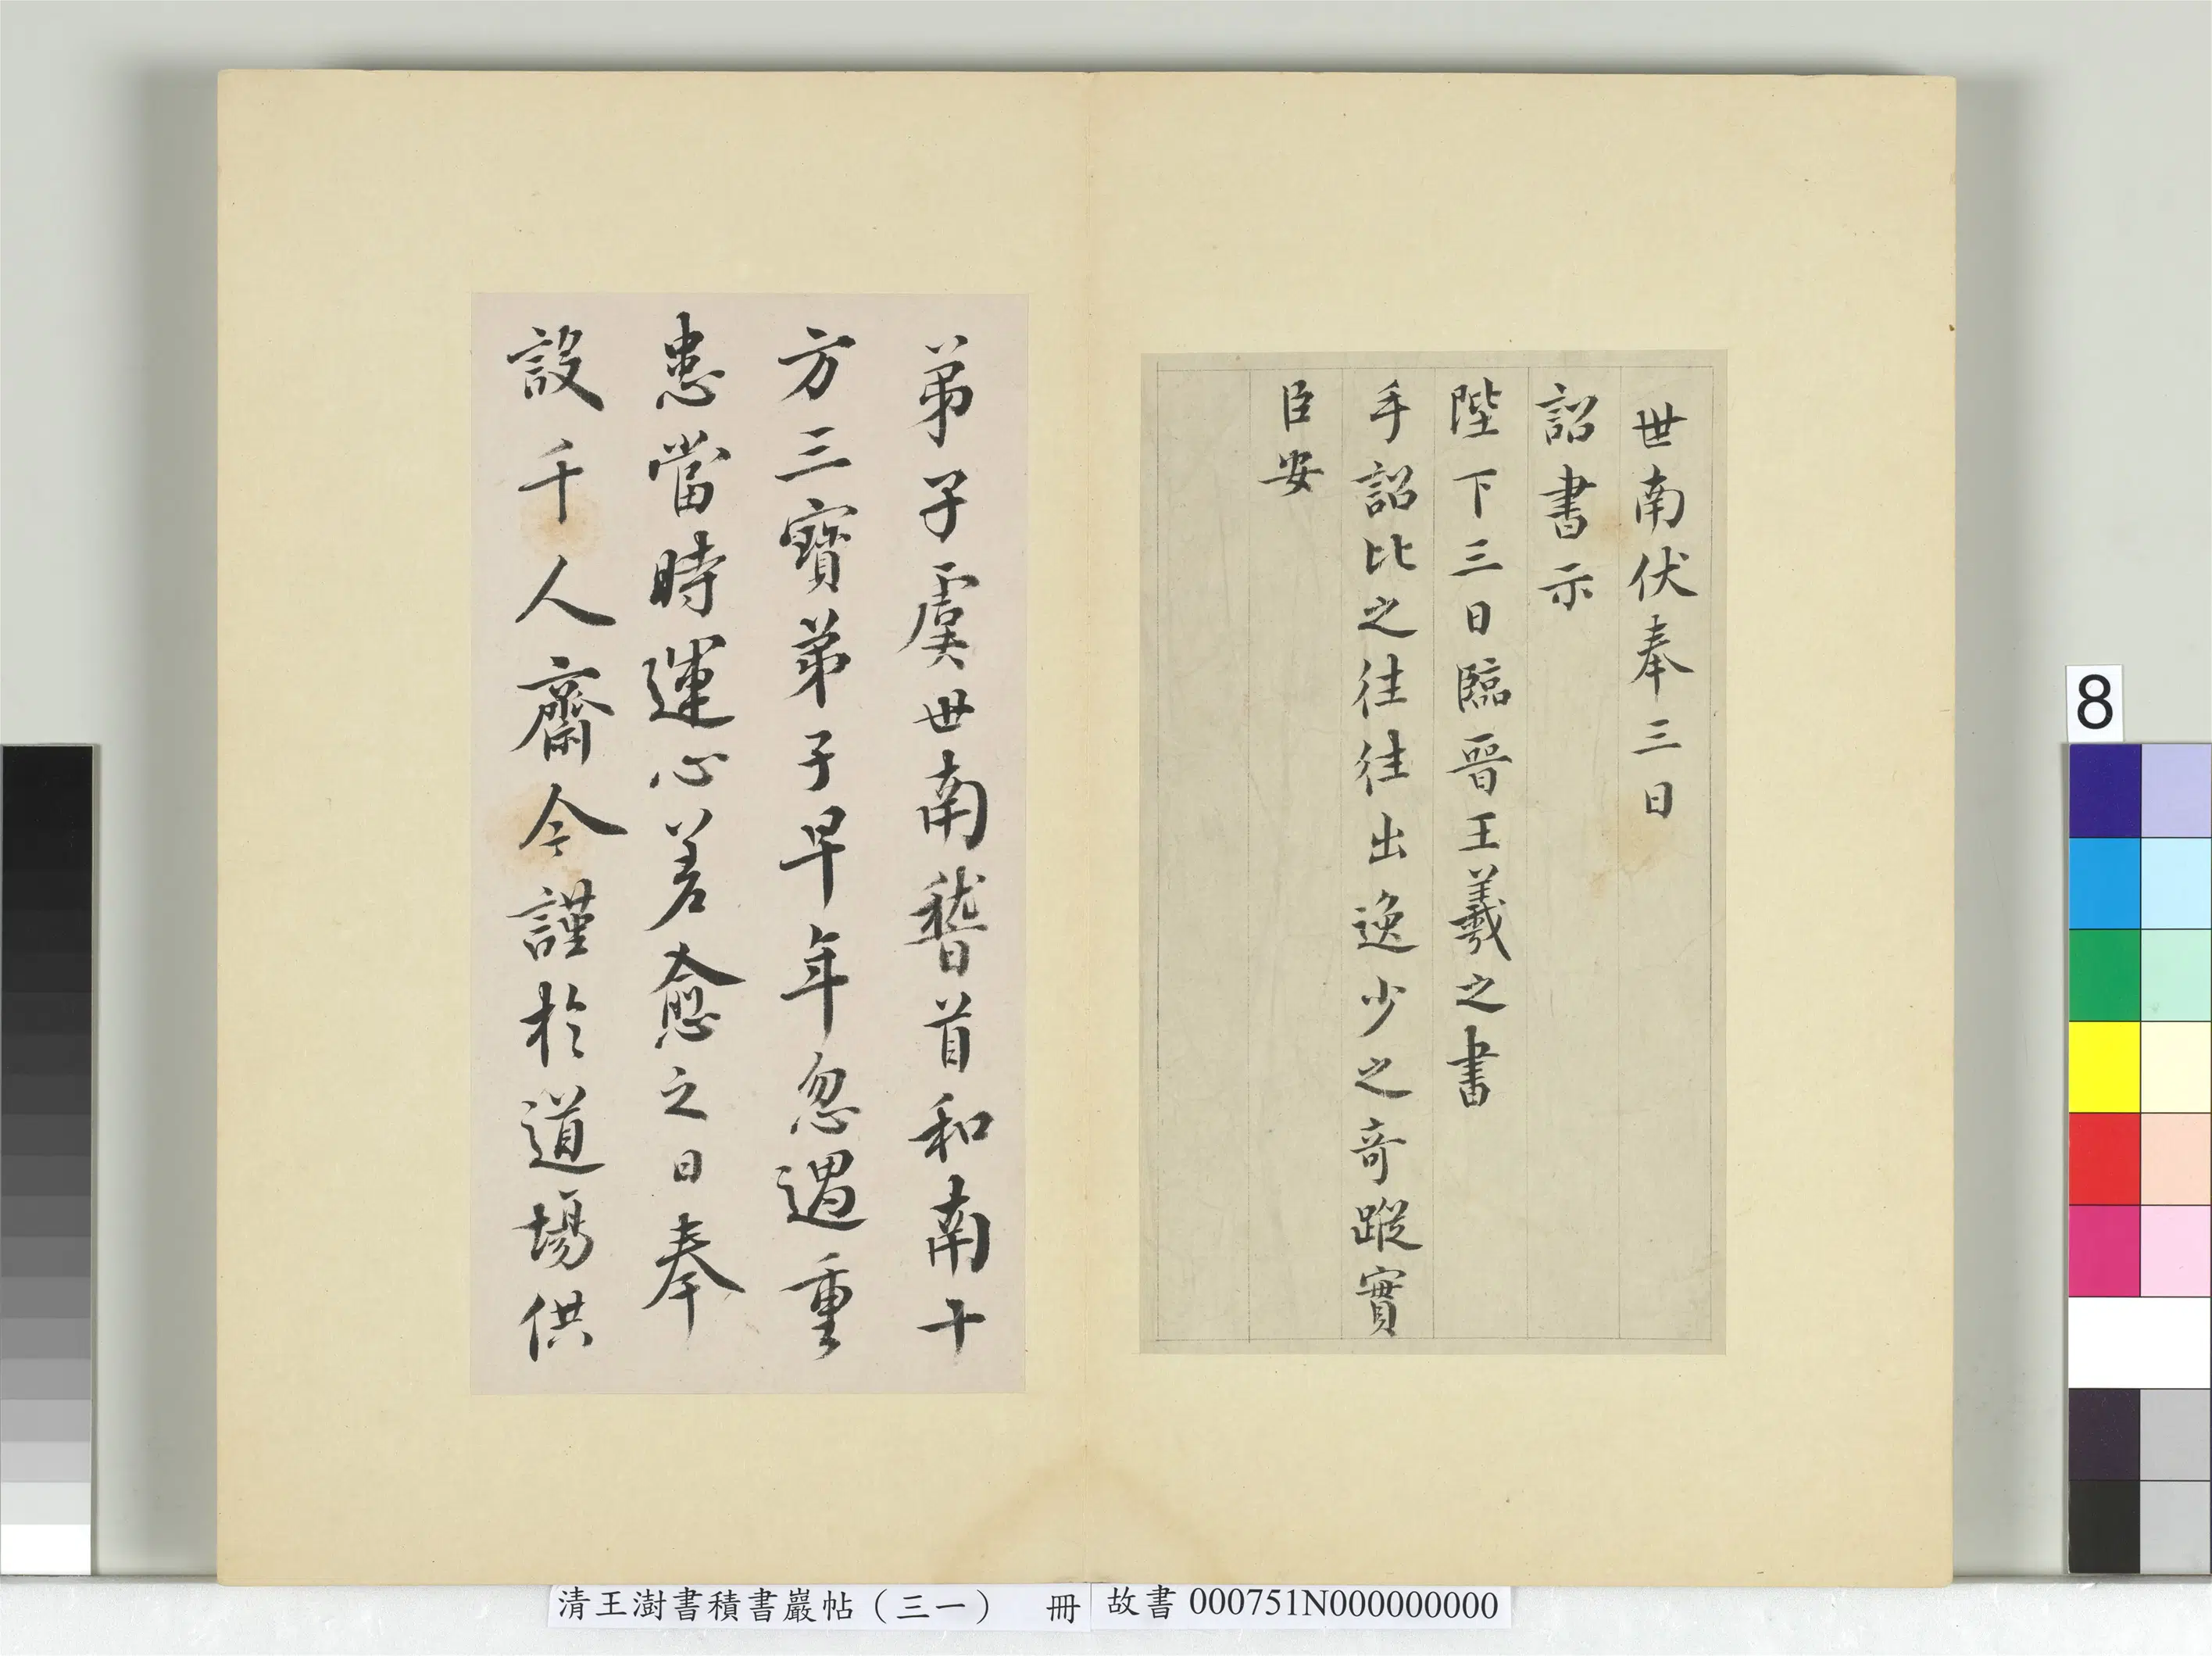 世南伏奉三日
詔書示
陛下三日臨晉王羲之書
手詔比之往往出逸少之奇蹤實
臣安
弟子虞世南稽首和南十
方三寶弟子早年忽遇重
患當時運心差愈之日奉
設千人齋今謹於道場供
清王澍書積書巖帖（三一） 冊
故書 000751N000000000
8